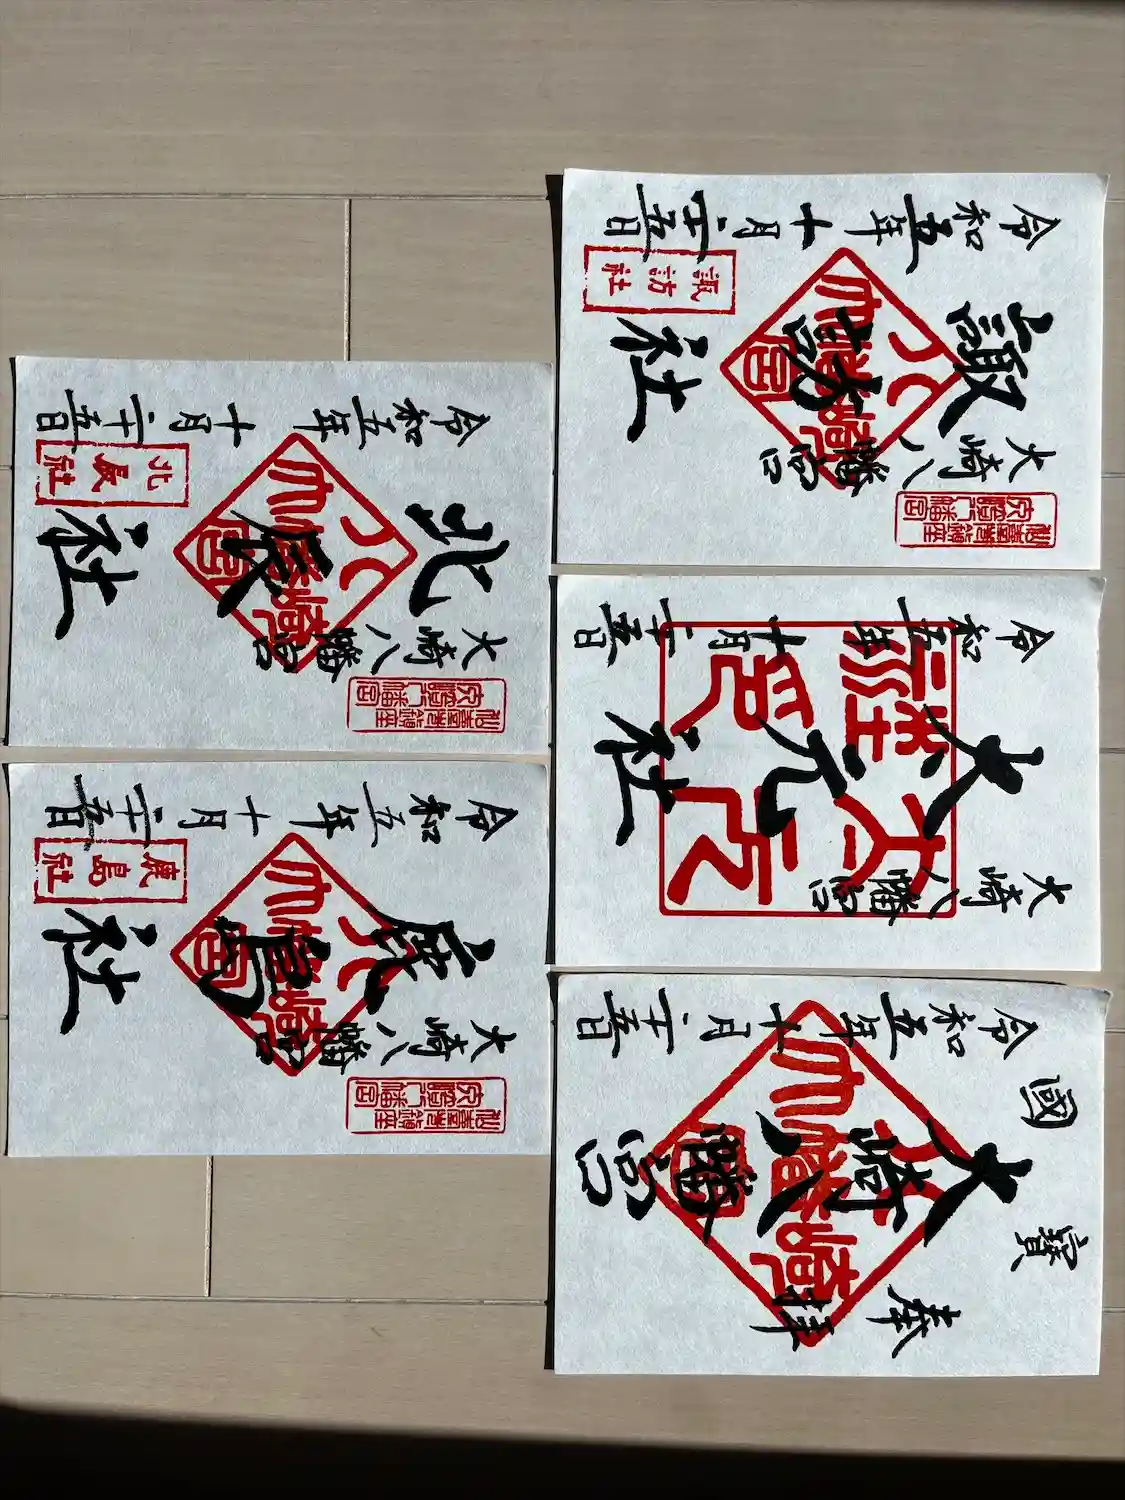 國寳
奉拝
大崎八幡宮
大崎八幡宮
令和五年十月二十五日
大崎八幡宮
大元社
令和五年十月二十五日
大崎八幡宮
大崎八幡宮
諏訪社
大崎八幡宮
諏訪社
令和五年十月二十五日
大崎八幡宮
大崎八幡宮
鹿島社
大崎八幡宮
鹿島社
令和五年十月二十五日
大崎八幡宮
大崎八幡宮
北辰社
大崎八幡宮
北辰社
令和五年十月二十五日